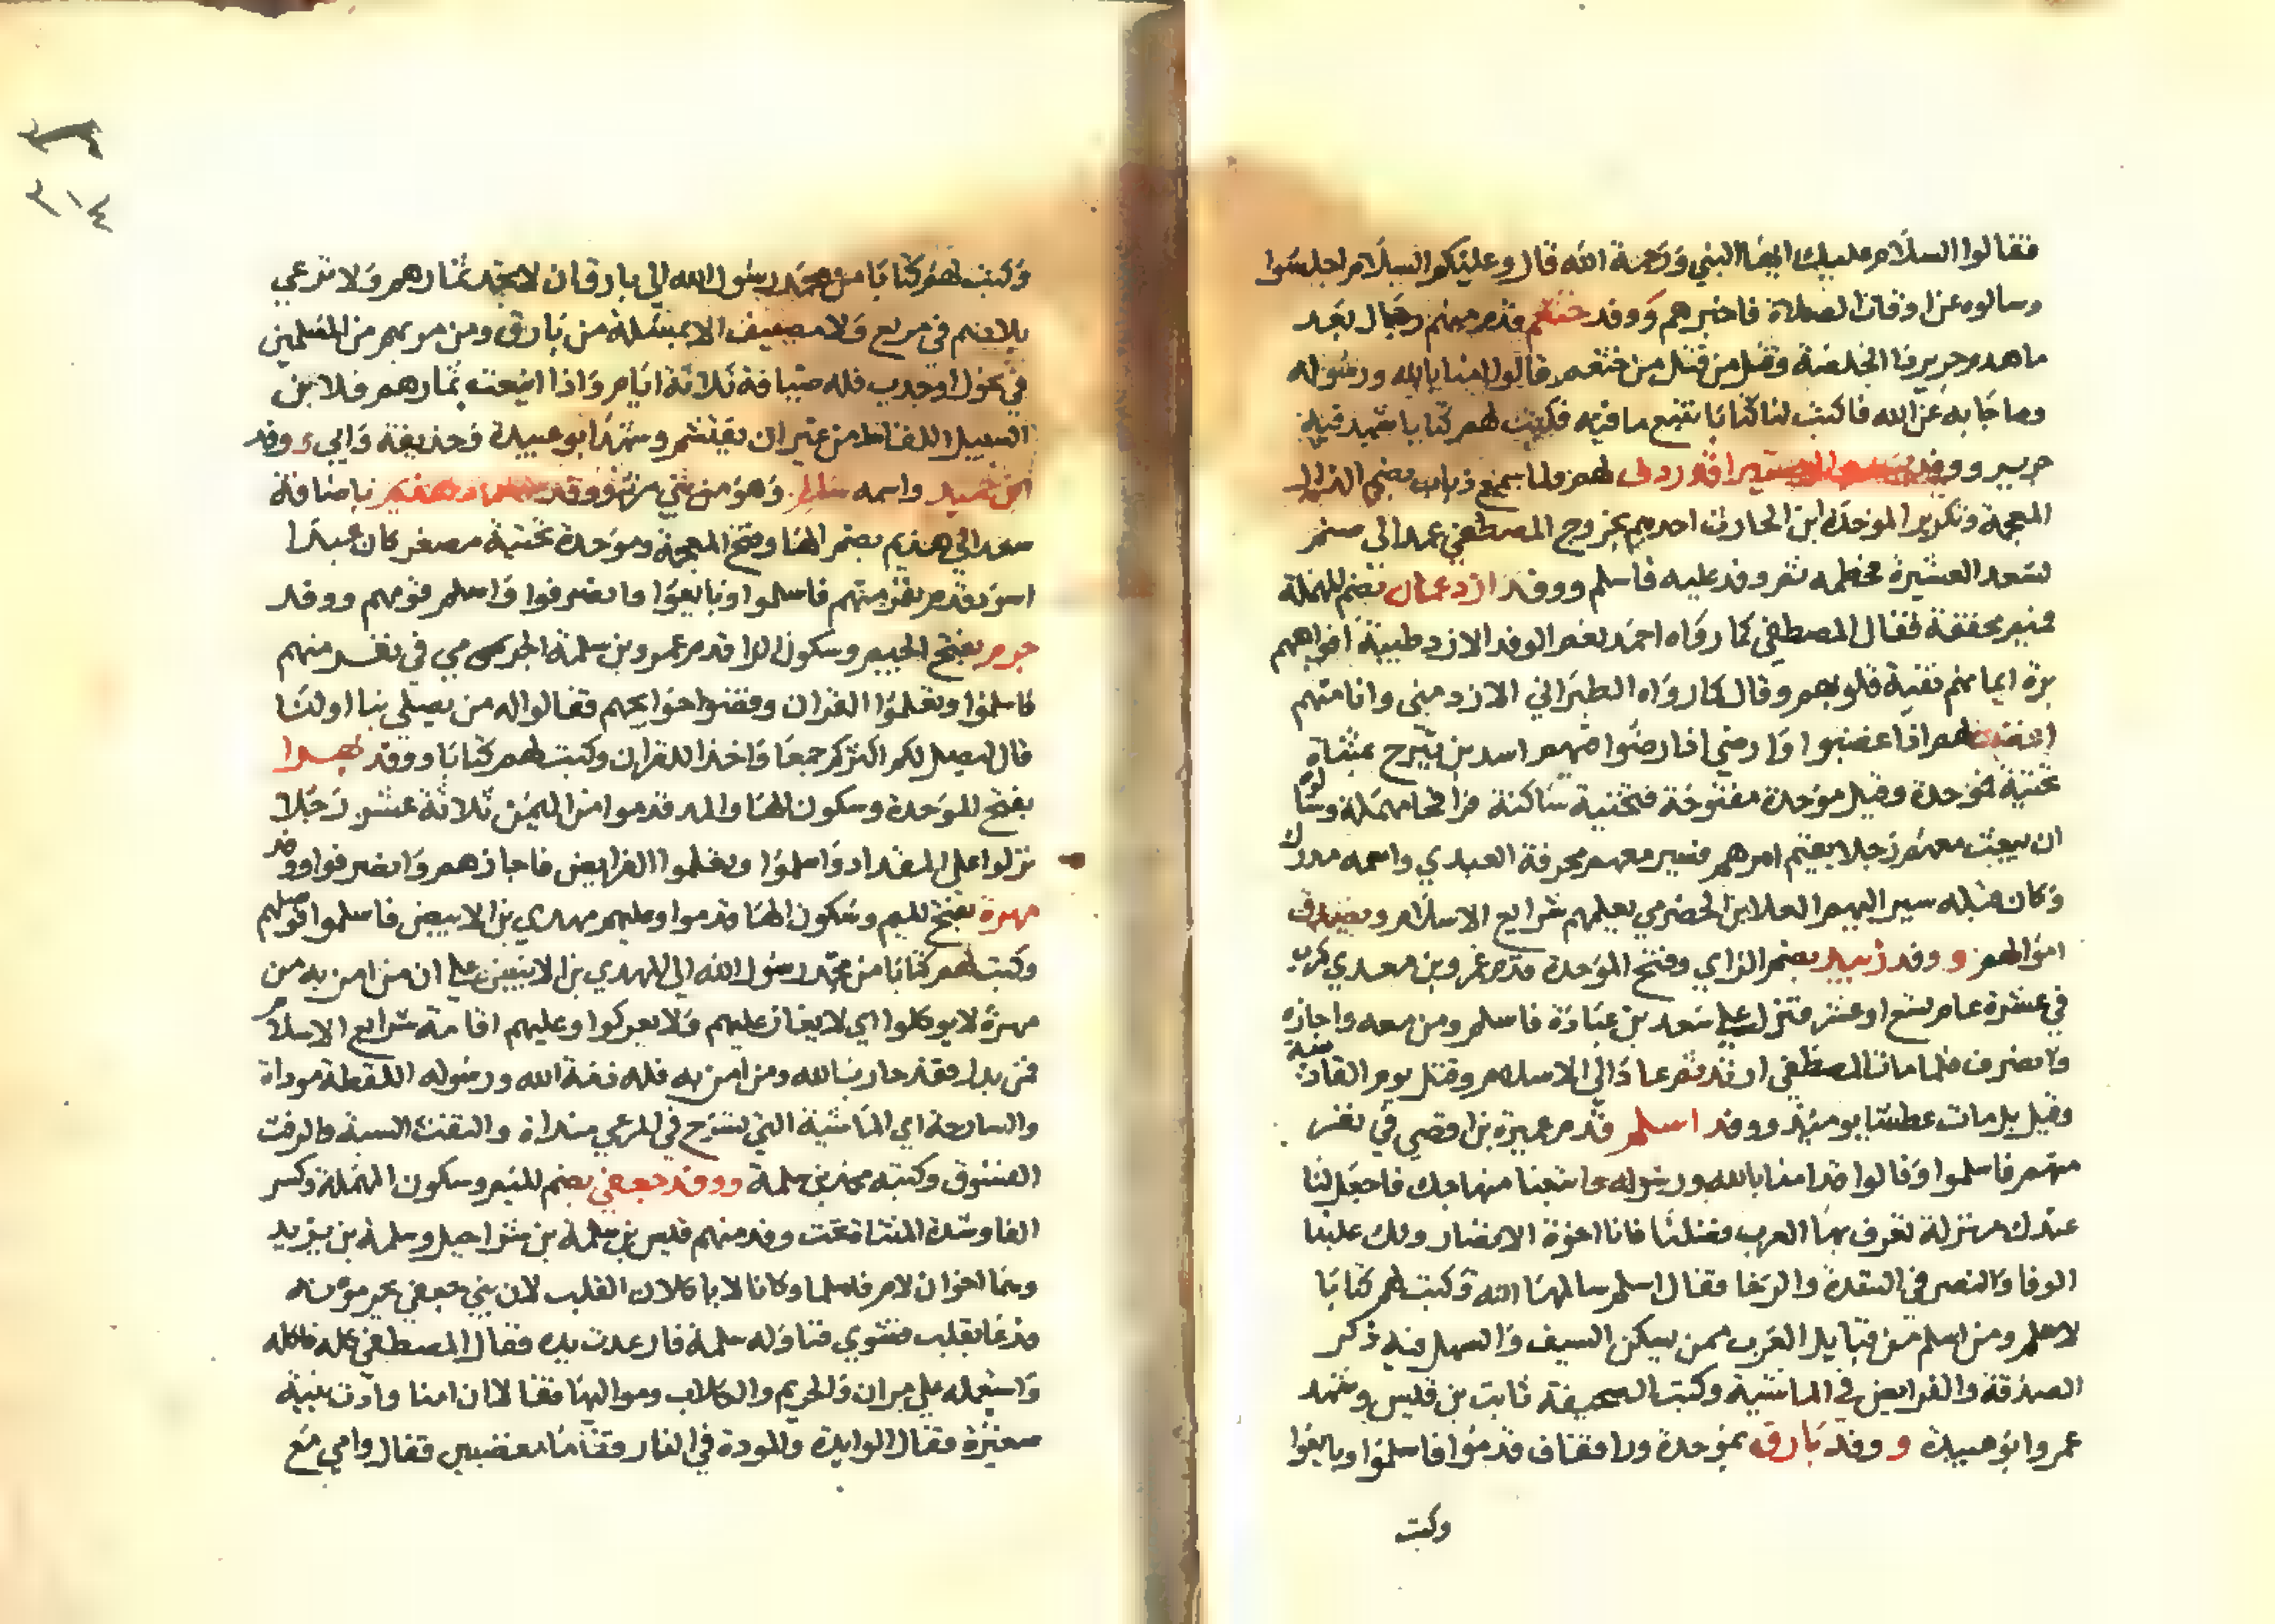 فقالوا السلام عليك ايها النبي ورحمة الله قال وعليكم السلام اجلسوا
وسالوه عن اوقات الصلاة فاخبرهم ووفد خثعم قدم منهم رجال بعد
ما هدم جرير ذا الخلصة وقتل من قتل من خثعم فقالوا امنا بالله ورسوله
وما جا به عن الله فاكتب لنا كتابا نتبع ما فيه فكتب لهم كتابا شهد فيه
جرير ووفد لهم ولما سمع ذباب بضم الذال
المعجمة وتكرير الموحدة ابن الحارث احدهم بخروج المصطفي عمد الى صنم
لسعد العشيرة فحطمه ثم وفد عليه فاسلم ووفد ازد عمان بضم المهملة
فميم مخففة فقال المصطفي كما رواه احمد نعم الوفد الازد طيبة افواههم
برة ايمانهم نقية قلوبهم وقال كما رواه الطبراني الازد مني وانا منهم
اغضب لهم اذا غضبوا وارضي اذا رضوا منهم اسد بن يبرح بمثناة
تحتية فموحدة وقيل موحدة مفتوحة فتحتية ساكنة فرا فحا مهملة وسالوه
ان يبعث معهم رجلا يقيم امرهم فسير معهم مخرفة العبدي واسمه مدرك
وكان قبله سير اليهم العلا ابن الحضرمي يعلمهم شرايع الاسلام ويصدق
اموالهم ووفد زبيد بضم الزاي وفتح الموحدة قدم عمرو بن معدي كرب
في عشرة عام تسع او عشر فنزل علي سعد بن عبادة فاسلم ومن معه واجازه
وانصرف فلما مات المصطفي ارتد ثم عاد الى الاسلام وقتل يوم القادسية
وقيل بل مات عطشا يومئذ ووفد اسلم قدم عميرة بن افصي في نفر
منهم فاسلموا وقالوا قد امنا بالله ورسوله واتبعنا منهاجك فاجعل لنا
عندك منزلة تعرف بها العرب فضلنا فانا اخوة الانصار ولك علينا
الوفا والنصر في الشدة والرخا فقال اسلم سالمها الله وكتب لهم كتابا
لاسلم ومن اسلم من قبايل العرب ممن يسكن السيف والسهل فيه ذكر
الصدقة والفرايض في الماشية وكتب الصحيفة ثابت بن قيس وشهد
عمر وابو عبيدة ووفد بارق بموحدة ورا فقاف قدموا فاسلموا وبايعوا
وكتب
وكتب لهم كتابا من محمد رسول الله الي بارق ان لا تجد ثمارهم ولا ترعي
بلادهم في مربع ولا مصيف الا بمسئلة من بارق ومن مر بهم من المسلمين
في عرك او جدب فله ضيافة ثلاثة ايام واذا اينعت ثمارهم فلابن
السبيل اللقاط من غير ان يقتثم وشهد ابو عبيدة وحذيفة وابي ووفد
واسمه وهو من بني مرة ووفد سعد هذيم باضافة
سعد الي هذيم بضم الها وفتح المعجمة وموحدة تحتية مصغر كان عبدا
اسود قدم نفر منهم فاسلموا وبايعوا وانصرفوا واسلم قومهم ووفد
جرم بفتح الجيم وسكون الرا قدم عمرو بن سلمة الجرمي في نفر منهم
فاسلموا وتعلموا القران وقضوا حوايجهم فقالوا له من يصلي بنا او لنا
قال ليصل لكم اكثركم جمعا واخذا للقران وكتب لهم كتابا ووفد بهرا
بفتح الموحدة وسكون الها والمد قدموا من اليمن ثلاثة عشر رجلا
نزلوا علي المقداد واسلموا وتعلموا الفرايض فاجازهم وانصرفوا ووفد
مهرة بفتح الميم وسكون الها قدموا وعليهم مهدي بن الابيض فاسلموا فوصلهم
وكتب لهم كتابا من محمد رسول الله الي المهدي بن الابيض علي ان من امن به من
مهرة لا يوكلوا اي لا يغار عليهم ولا يعركوا وعليهم اقامة شرايع الاسلام
فمن بدل فقد حارب الله ومن امن به فله ذمة الله ورسوله اللقطة موداة
والسارحة اي الماشية التي تسرح في المرعي منداة والتفث السية والرفث
الفسوق وكتبه محمد بن مسلمة ووفد جعفي بضم الجيم وسكون المهملة وكسر
الفا وشدة المثناة تحت وفد منهم قيس بن سلمة بن شراحيل وسلمة بن يزيد
وهما اخوان لام فاسلما وكانا لا ياكلان القلب لان بني جعفي يحرمونه
فدعا بقلب فشوي فناوله سلمة فارعدت يده فقال المصطفي كله فاكله
واستعمله علي مران والحريم والكلاب ومواليها فقالا ان امنا وادت بنية
صغيرة فقال الوايدة والموودة في النار فقاما مغضبين فقال وامي مع